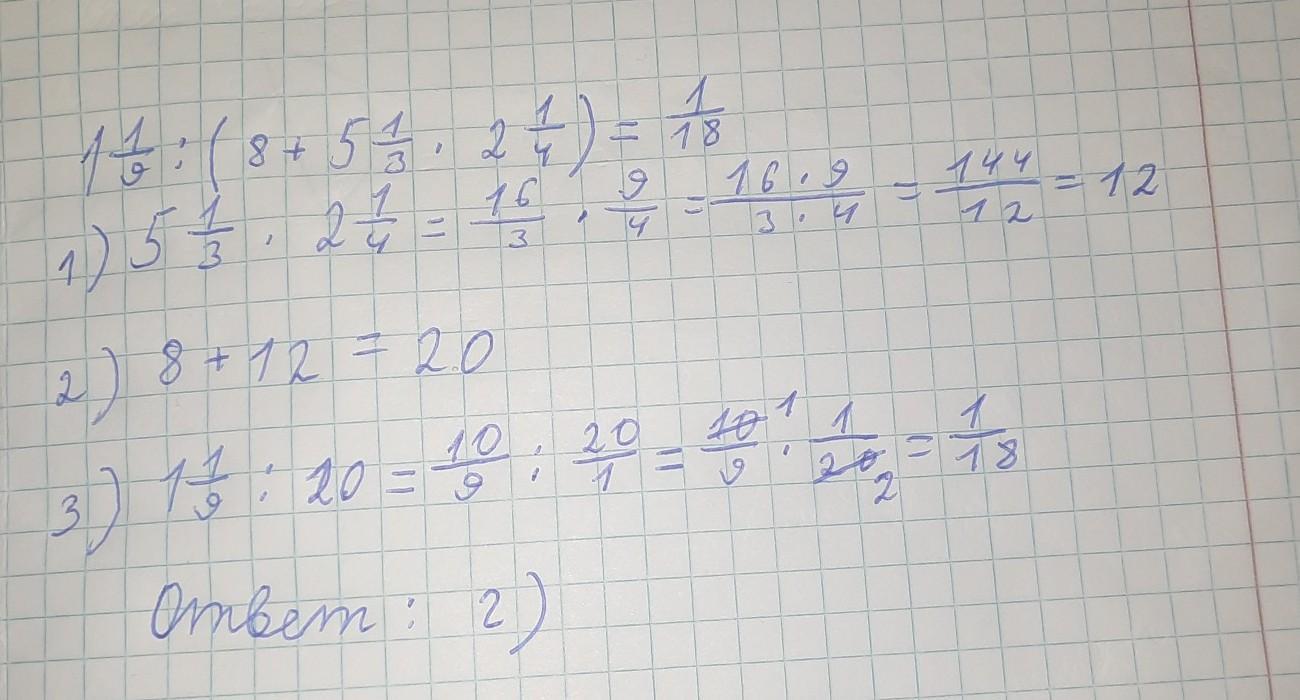 1 1/9 : ( 8 + 5 1/3 · 2 1/4 ) = 1/18
1) 5 1/3 · 2 1/4 = 16/3 · 9/4 = 16·9/3·4 = 144/12 = 12
2) 8 + 12 = 20
3) 1 1/9 : 20 = 10/9 : 20/1 = 10 1/9 · 1/20 2 = 1/18
Ответ : 2)